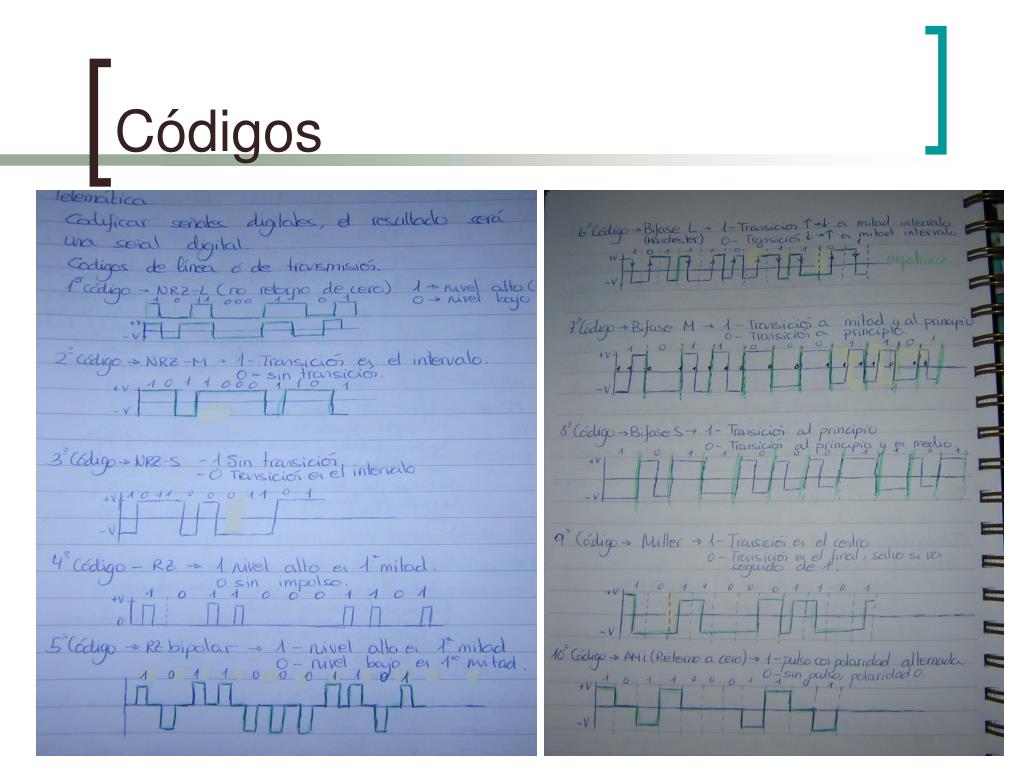 Códigos
Telemática
Codificar señales digitales, el resultado será
una señal digital.
Codigos de línea o de transmisión.
1º código → NRZ-L (no retorno de cero) 1 → nivel alto (
0 → nivel bajo
1 0 1 1 0 0 0 1 1 0 1
+V
-V
2º Código → NRZ-M → 1 - Transición en el intervalo.
0 - sin transición.
+V 1 0 1 1 0 0 0 1 1 0 1
-V
3º Código → NRZ-S - 1 Sin transición
- 0 Transición en el intervalo
+V 1 0 1 1 0 0 0 1 1 0 1
-V
4º Código - RZ → 1 nivel alto en 1ª mitad.
0 sin impulso.
+V 1 0 1 1 0 0 0 1 1 0 1
0
5º Código → RZ bipolar → 1 - nivel alto en 1ª mitad
0 - nivel bajo en 1ª mitad.
1 0 1 1 0 0 0 1 1 0 1
6º Código → Bifase L → 1 - Transición ↑→↓ en mitad intervalo
(Manchester) 0 - Transición ↓→↑ en mitad intervalo.
1 0 1 1 0 0 0 1 1 0 1
+V
-V
7º Código → Bifase M → 1 - Transición a mitad y al principio
0 - Transición a principio.
+V 1 0 1 1 0 0 0 1 1 0 1
-V
8º Código → Bifase S → 1 - Transición al principio
0 - Transición al principio y en medio.
+V 1 0 1 1 0 0 0 1 1 0 1
-V
9º Código → Miller → 1 - Transición en el centro
0 - Transición en el final, salvo si va
seguido de 1.
+V 1 0 1 1 0 0 0 1 1 0 1
-V
10º Código → AMI (Retorno a cero) → 1 - pulso con polaridad alternada
0 - sin pulso, polaridad 0.
+V 1 0 1 1 0 0 0 1 1 0 1
-V